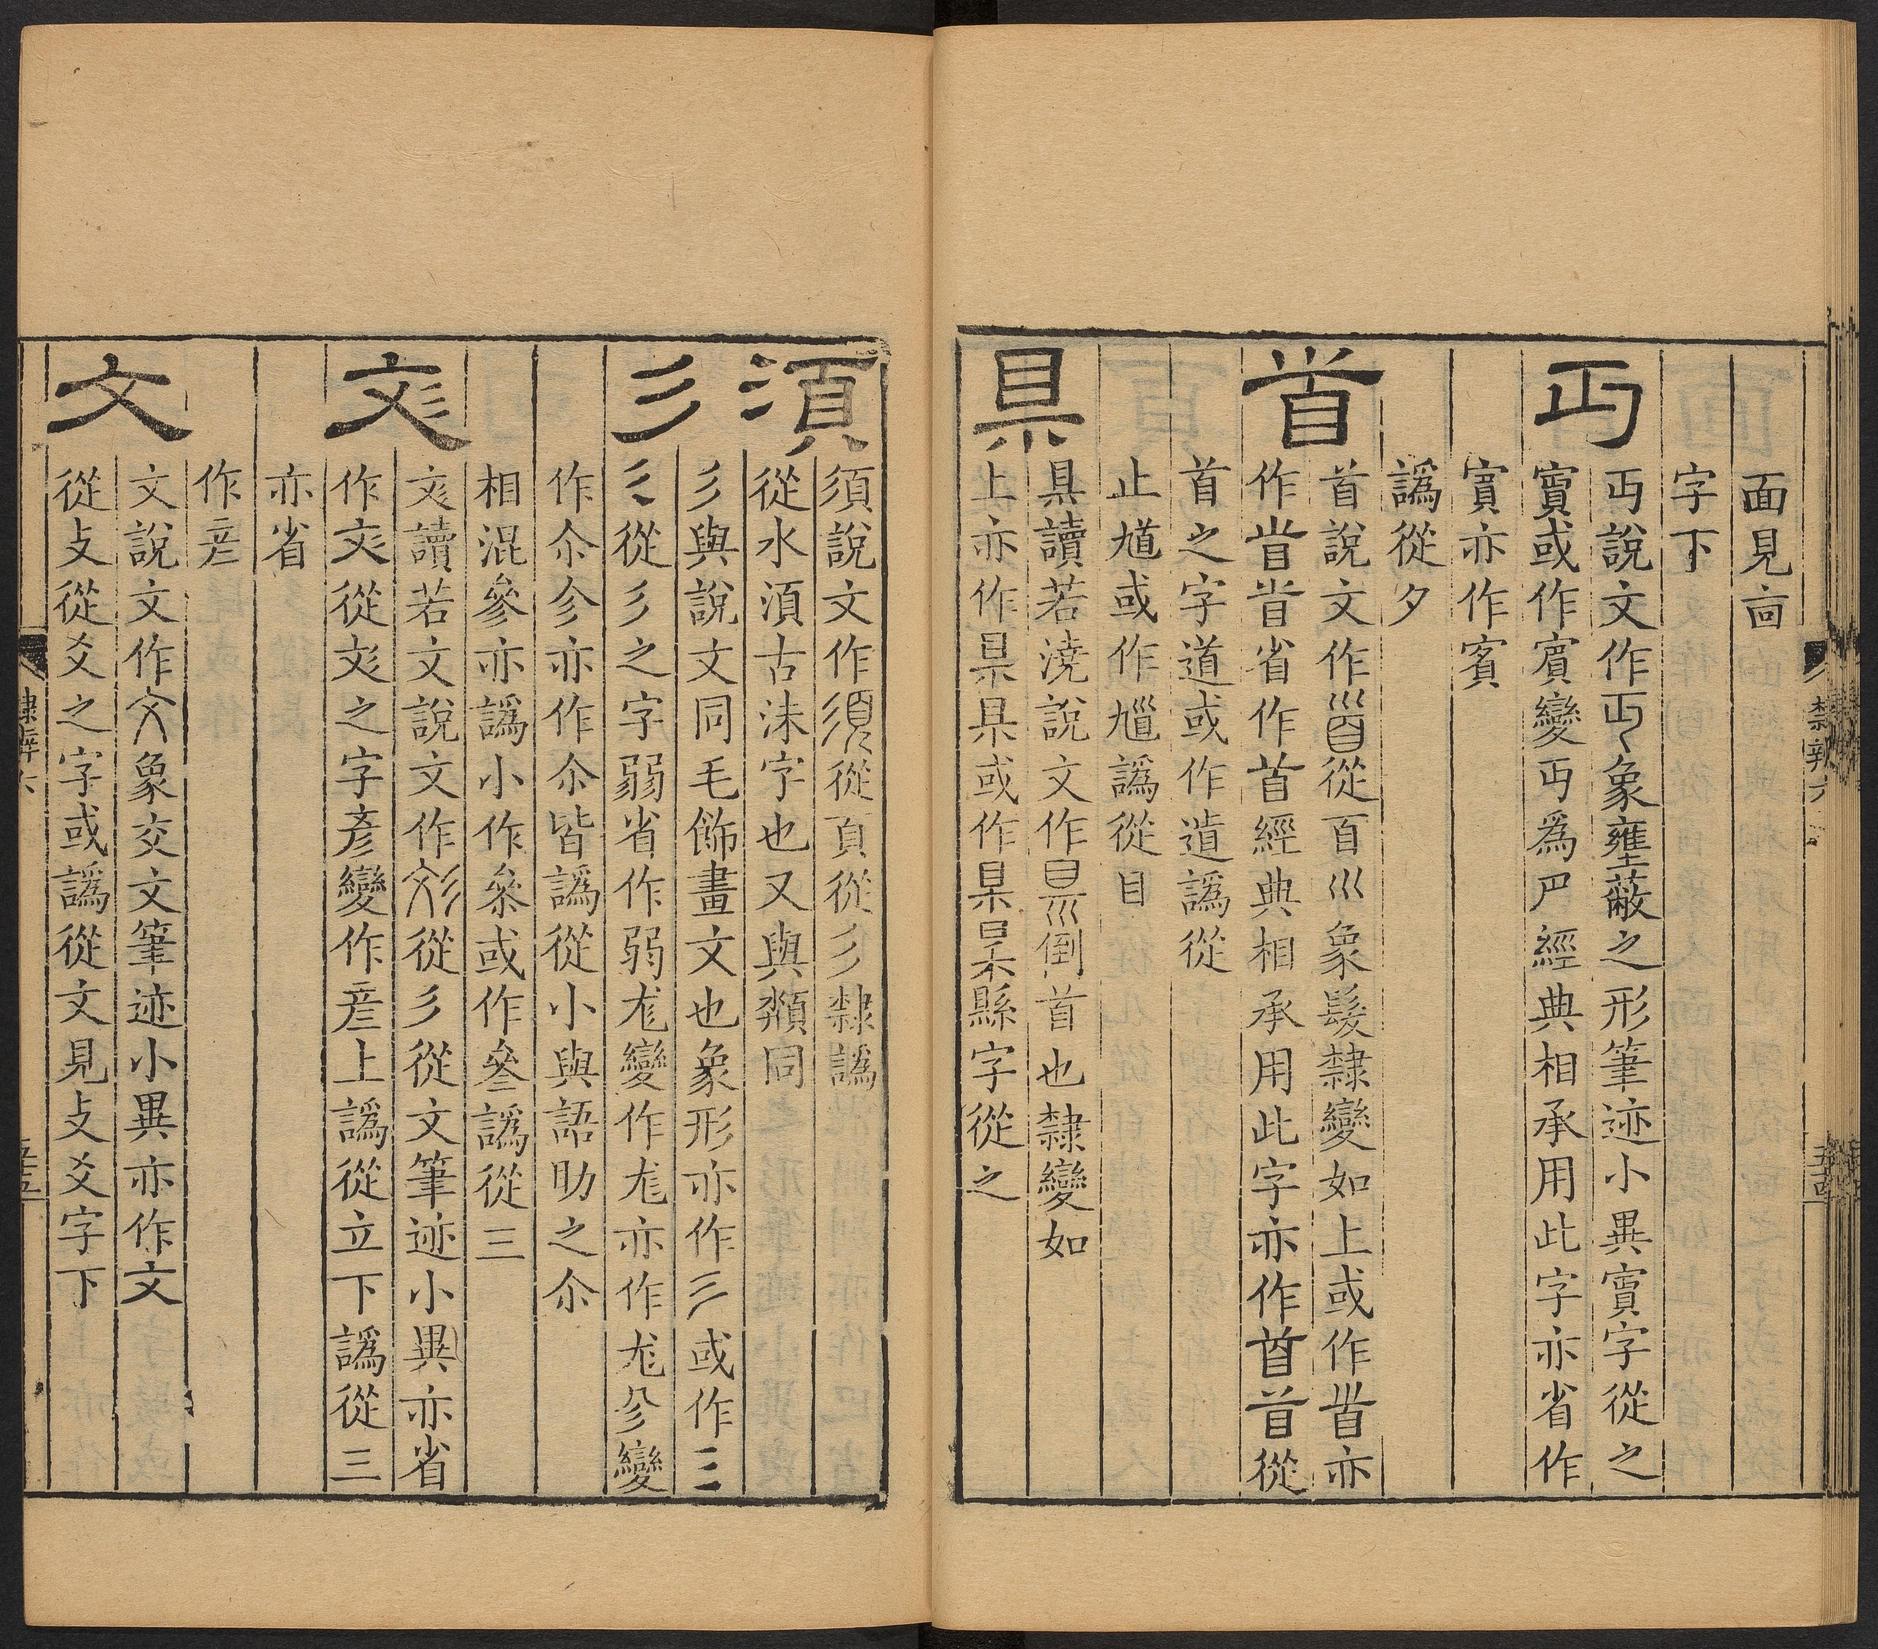 面見𠚑
字下
丏
丏說文作丏象壅蔽之形筆迹小異賔字從之
賔或作賓變丏爲尸經典相承用此字亦省作
賔亦作賓
譌從夕
首
首說文作𩠐從百巛象髮隸變如上或作𩠐亦
作𩠐𩠐省作首經典相承用此字亦作首首從
首之字道或作遉譌從
止馗或作馗譌從目
県
県讀若澆說文作県倒首也隸變如
上亦作県県或作県県縣字從之
隸辨六
五十四
須
須說文作須從頁從彡隸譌
從水湏古沬字也又與類同
彡
彡與說文同毛飾畫文也象形亦作彡或作三
彡從彡之字弱省作弱尨變作尨亦作尨㐱變
作尒㐱亦作尒皆譌從小與語助之尒
相混參亦譌小作叅或作叁譌從三
彣
彣讀若文說文作彣從彡從文筆迹小異亦省
作彣從彣之字彥變作产上譌從立下譌從三
亦省
作产
文
文說文作文象交文筆迹小異亦作文
從攴從爻之字或譌從文見攴爻字下
隸辨六
五十五